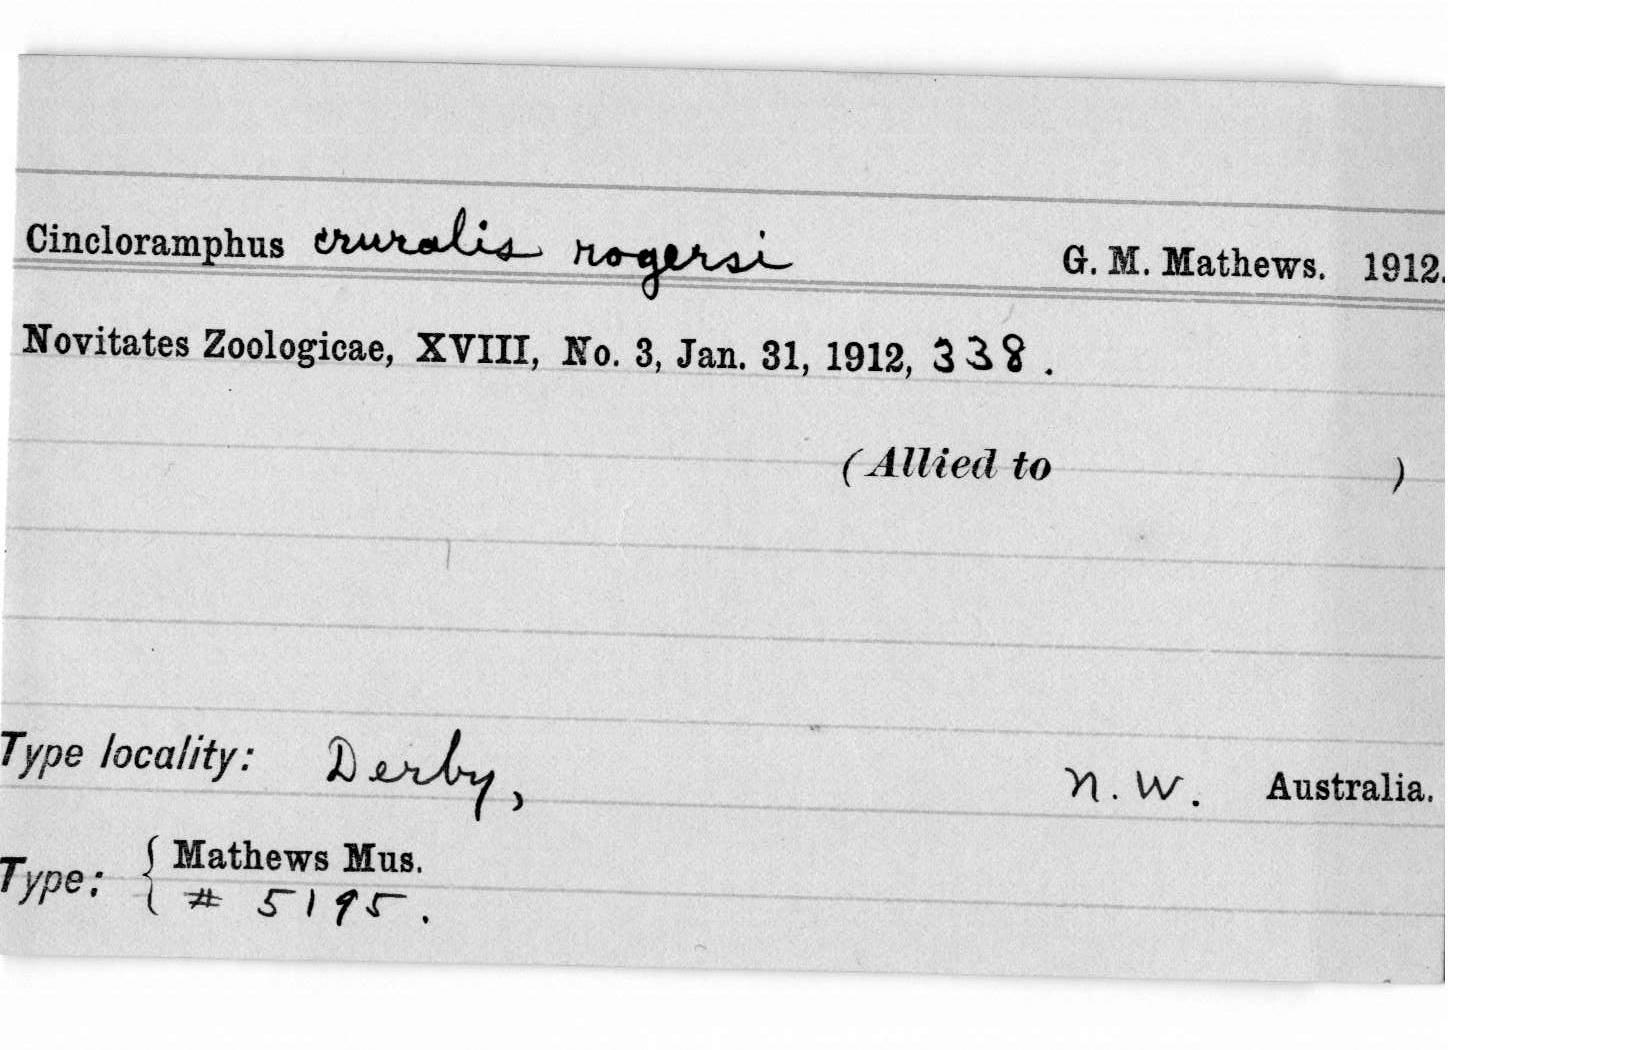 Cincloramphus cruralis rogersi G. M. Mathews. 1912.
Novitates Zoologicae, XVIII, No. 3, Jan. 31, 1912, 338.
(Allied to )
Type locality: Derby, N. W. Australia.
Type: { Mathews Mus.
# 5195.